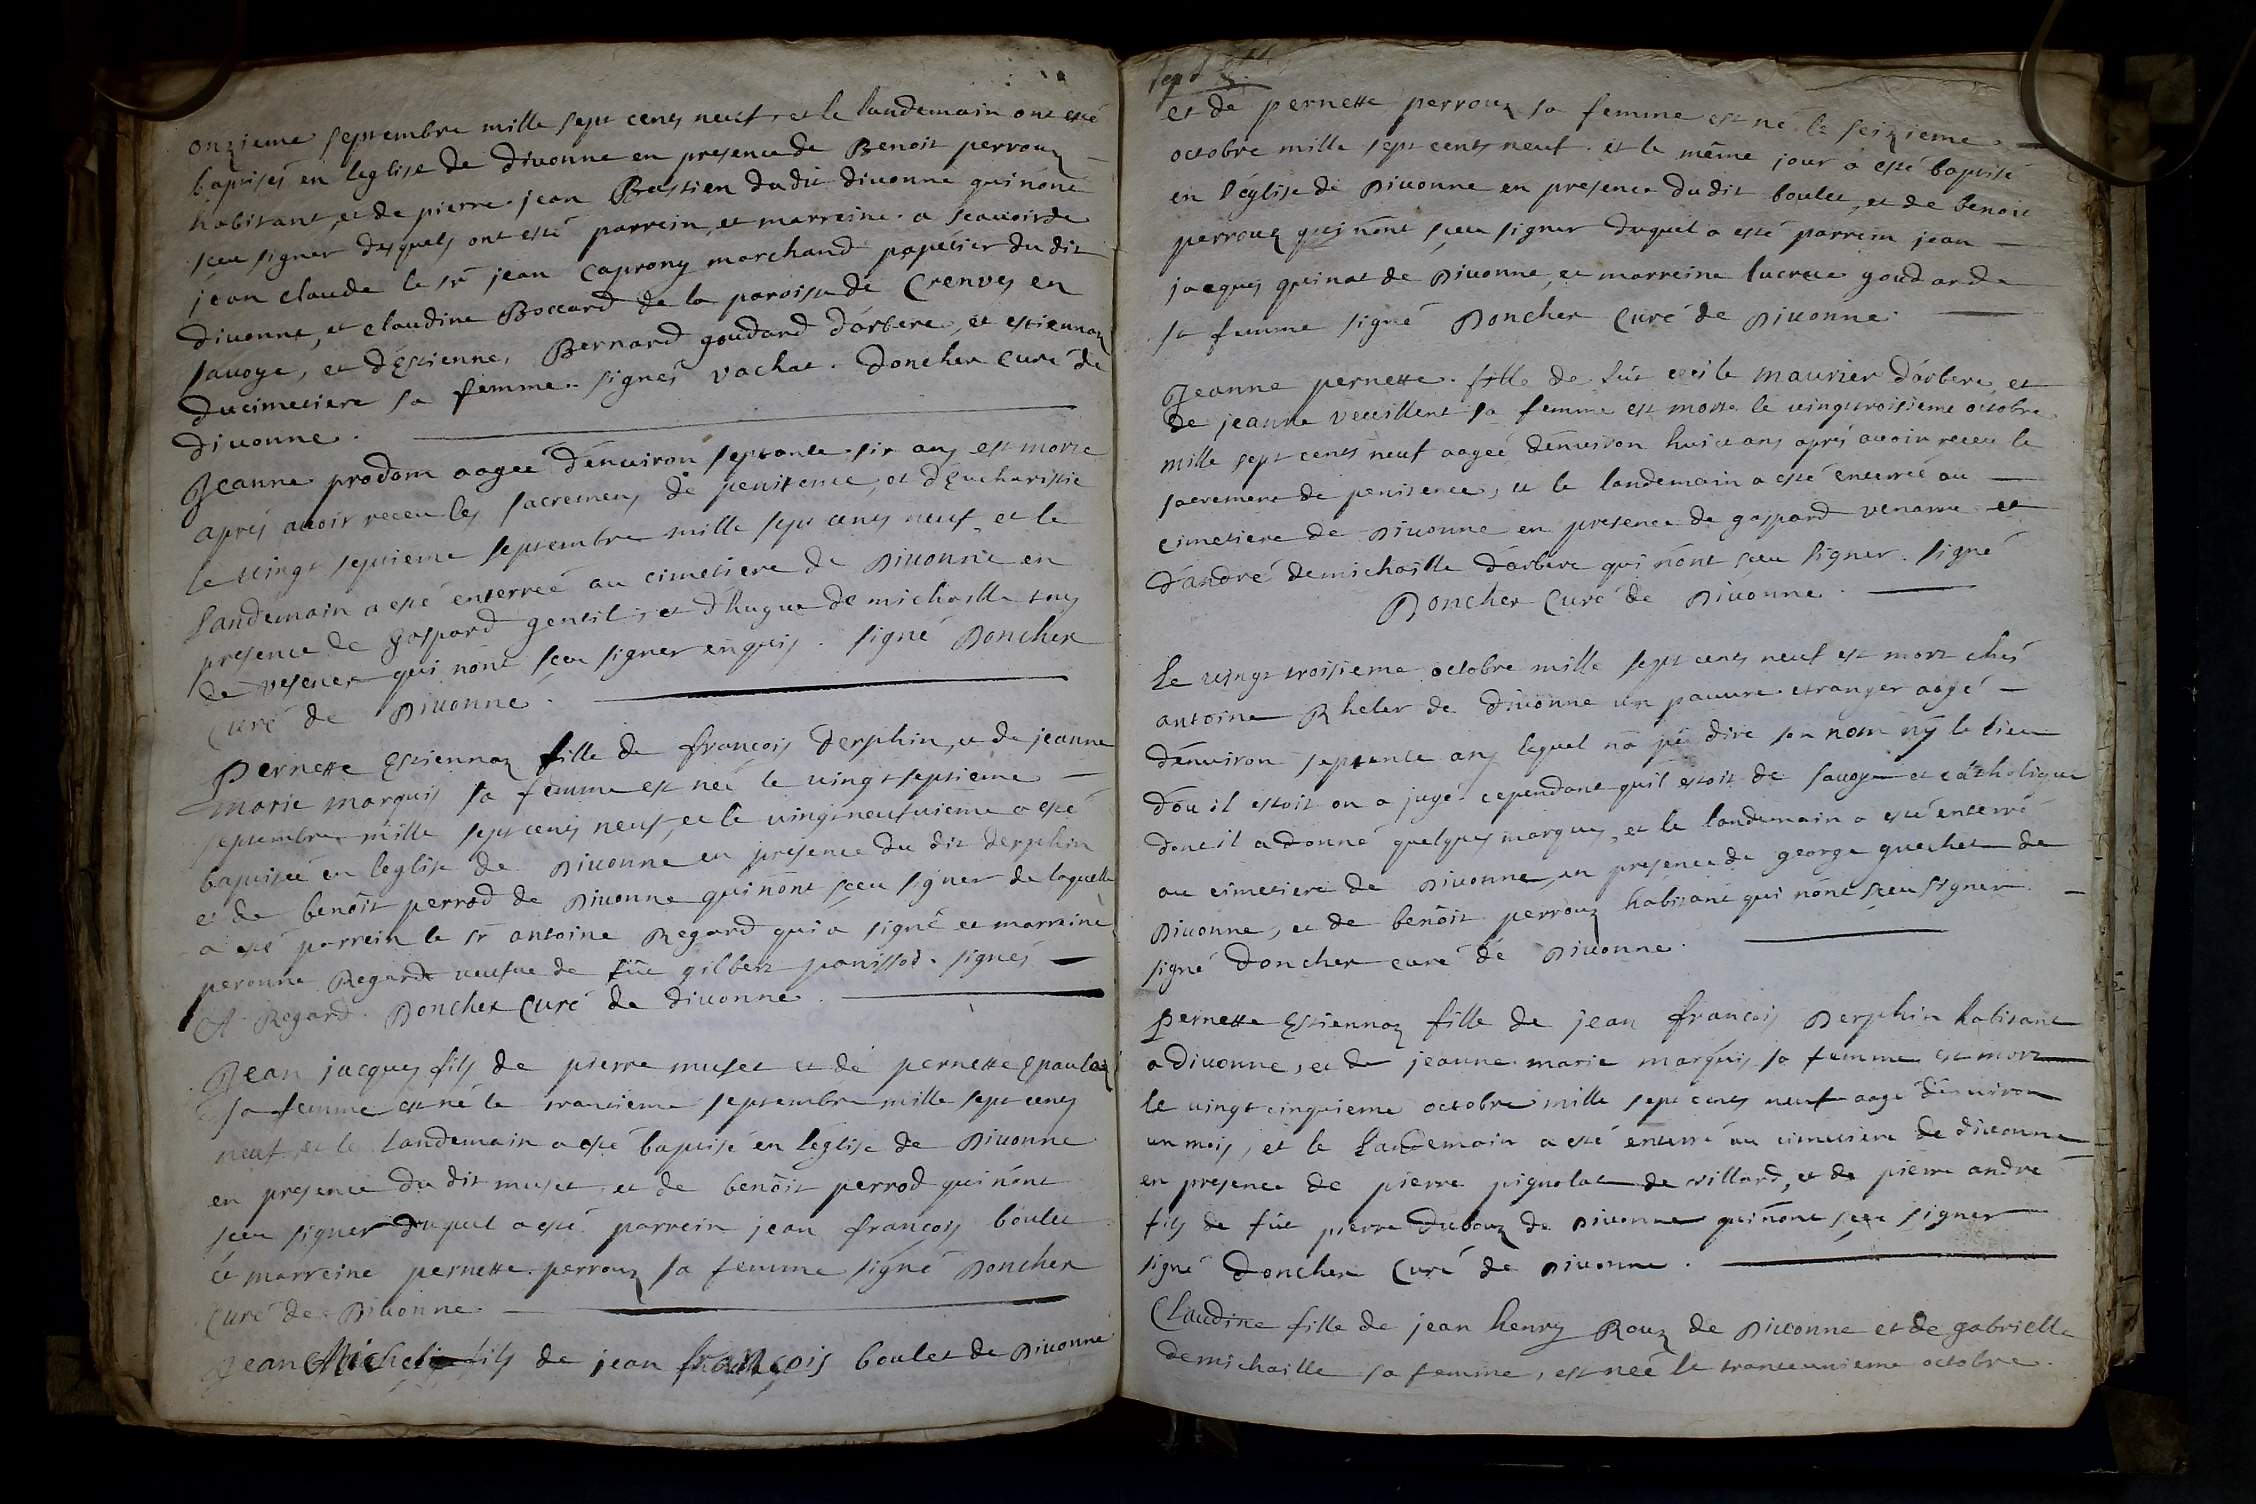 onzieme septembre mille sept cents neuf, et le landemain ont esté
baptisés en leglise de divonne en presence de Benoit perrouz
habitant, et de pierre jean Bastien dudit divonne qui n'ont
sceu signer desquels ont esté parrein, et marreine a scauoir de
jean claude le sr jean Caprony marchand papetier du dit
divonne, et claudine Boccard de la paroisse de Crenves en
sauoye, et d'Estienne, Bernard goudard d'arbere, et estiennaz
ducimetiere sa femme. signés vachat. Doncher Curé de
divonne.
Jeanne prodom aageé d'enuiron septante six ans est morte
aprés auoir receu les sacremens de penitence, et d'Eucharistie
le vingt septieme septembre mille sept cents neuf et le
landemain a esté enterreé au cimetiere de Diuonne en
presence de gaspard gentil, et d'hugue demichaille tous
de vesenex qui n'ont sceu signer enquis. signé Doncher
Curé de Diuonne.
Pernette Estiennaz fille de françois Derphin, et de jeanne
marie marquis sa femme est neé le vingt septieme
septembre mille sept cents neuf, et le vingt neufuieme a esté
baptiseé en leglise de Diuonne en presence du dit derphin
et de benoit perrod de Diuonne qui n'ont sceu signer de laquelle
a esté parrein le sr antoine Regard qui a signé et marreine
peronne Regard ueufue de fût gilbert panissod. signés
A. Regard. Doncher Curé de diuonne.
Jean jacques fils de pierre muset et de pernette Epaulaz
sa femme est né le trantieme septembre mille sept cents
neuf, et le landemain a esté baptisé en l'église de Diuonne
en presence du dit muset, et de benoit perrod qui n'ont
sceu signer duquel a esté parrein jean françois boulet
et marreine pernette perrouz sa femme signé Doncher
Curé de Diuonne.
Jean Michel fils de jean françois boulet de Diuonne
et de pernette perrouz sa femme est né le seizieme
octobre mille sept cents neuf. et le même jour a esté baptisé
en l'église de Diuonne en presence dudit boulet, et de benoit
perrouz qui n'ont sceu signer duquel a esté parrein jean
jacques quinat de Diuonne, et marreine lucrece goudarde
sa femme signé Doncher Curé de Diuonne.
Jeanne pernette fille de fût maurier d'arbere et
de jeanne veuillent sa femme est morte le vingt troisieme octobre
mille sept cents neuf aageé d'enuiron huict ans aprés auoir receu le
sacrement de penitence, et le landemain a esté enterreé au
cimetiere de Diuonne en presence de gaspard venarre et
d'andré demichaille d'arbere qui n'ont sceu signer. signé
Doncher Curé de Diuonne.
Le vingt troisieme octobre mille sept cents neuf est mort chés
antoine Rheler de diuonne un pauure estranger aagé
d'enuiron septante ans lequel n'a pû dire son nom ny le lieu
d'ou il estoit on a jugé cependant quil estoit de sauoye et catholique
dont il a donné quelques marques, et le landemain a esté enterré
au cimetiere de Diuonne en presence de george quechet de
Diuonne, et de benôit perrouz habitant qui n'ont sceu signer.
signé Doncher curé de Diuonne.
Pernette Estiennaz fille de jean françois Derphin habitant
a Diuonne, et de jeanne marie marquis sa femme est mort
le vingt cinquieme octobre mille sept cents neuf aagé d'enuiron
un mois, et le landemain a esté enterré au cimetiere de diuonne
en presence de pierre pignolat de villard, et de pierre andré
fils de fût pierre Dubouz de Diuonne qui n'ont sceu signer
signé Doncher Curé de Diuonne.
Claudine fille de jean henry Rouz de Diuonne et de gabrielle
demichaille sa femme, est neé le tranteunieme octobre.